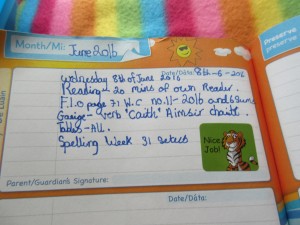 Month/Mí: June 2016
Date/Dáta: 8th-6-201
Wednesday 8th of June 2016
Reading - 20 mins of own Reader.
F.I.O page 71. W.C no.11-2016 and 6 Sums
Gaeilge - verb "Caith" Aimsir chaite.
Tables - ALL.
Spelling Week 31 Select
Nice Job!
Parent/Guardian's Signature:
Date/Dáta:
Preserve
preserve